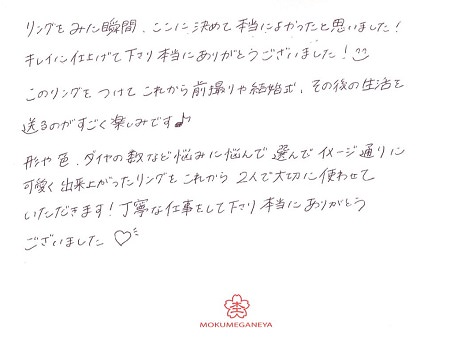 リングをみた瞬間、ここに決めて本当によかったと思いました!
キレイに仕上げて下さり本当にありがとうございました!
このリングをつけてこれから前撮りや結婚式、その後の生活を
送るのがすごく楽しみです♪
形や色、ダイヤの数など悩みに悩んで選んでイメージ通りに
可愛く出来上がったリングをこれから2人で大切に使わせて
いただきます!丁寧な仕事をして下さり本当にありがとう
ございました♡
MOKUMEGANEYA